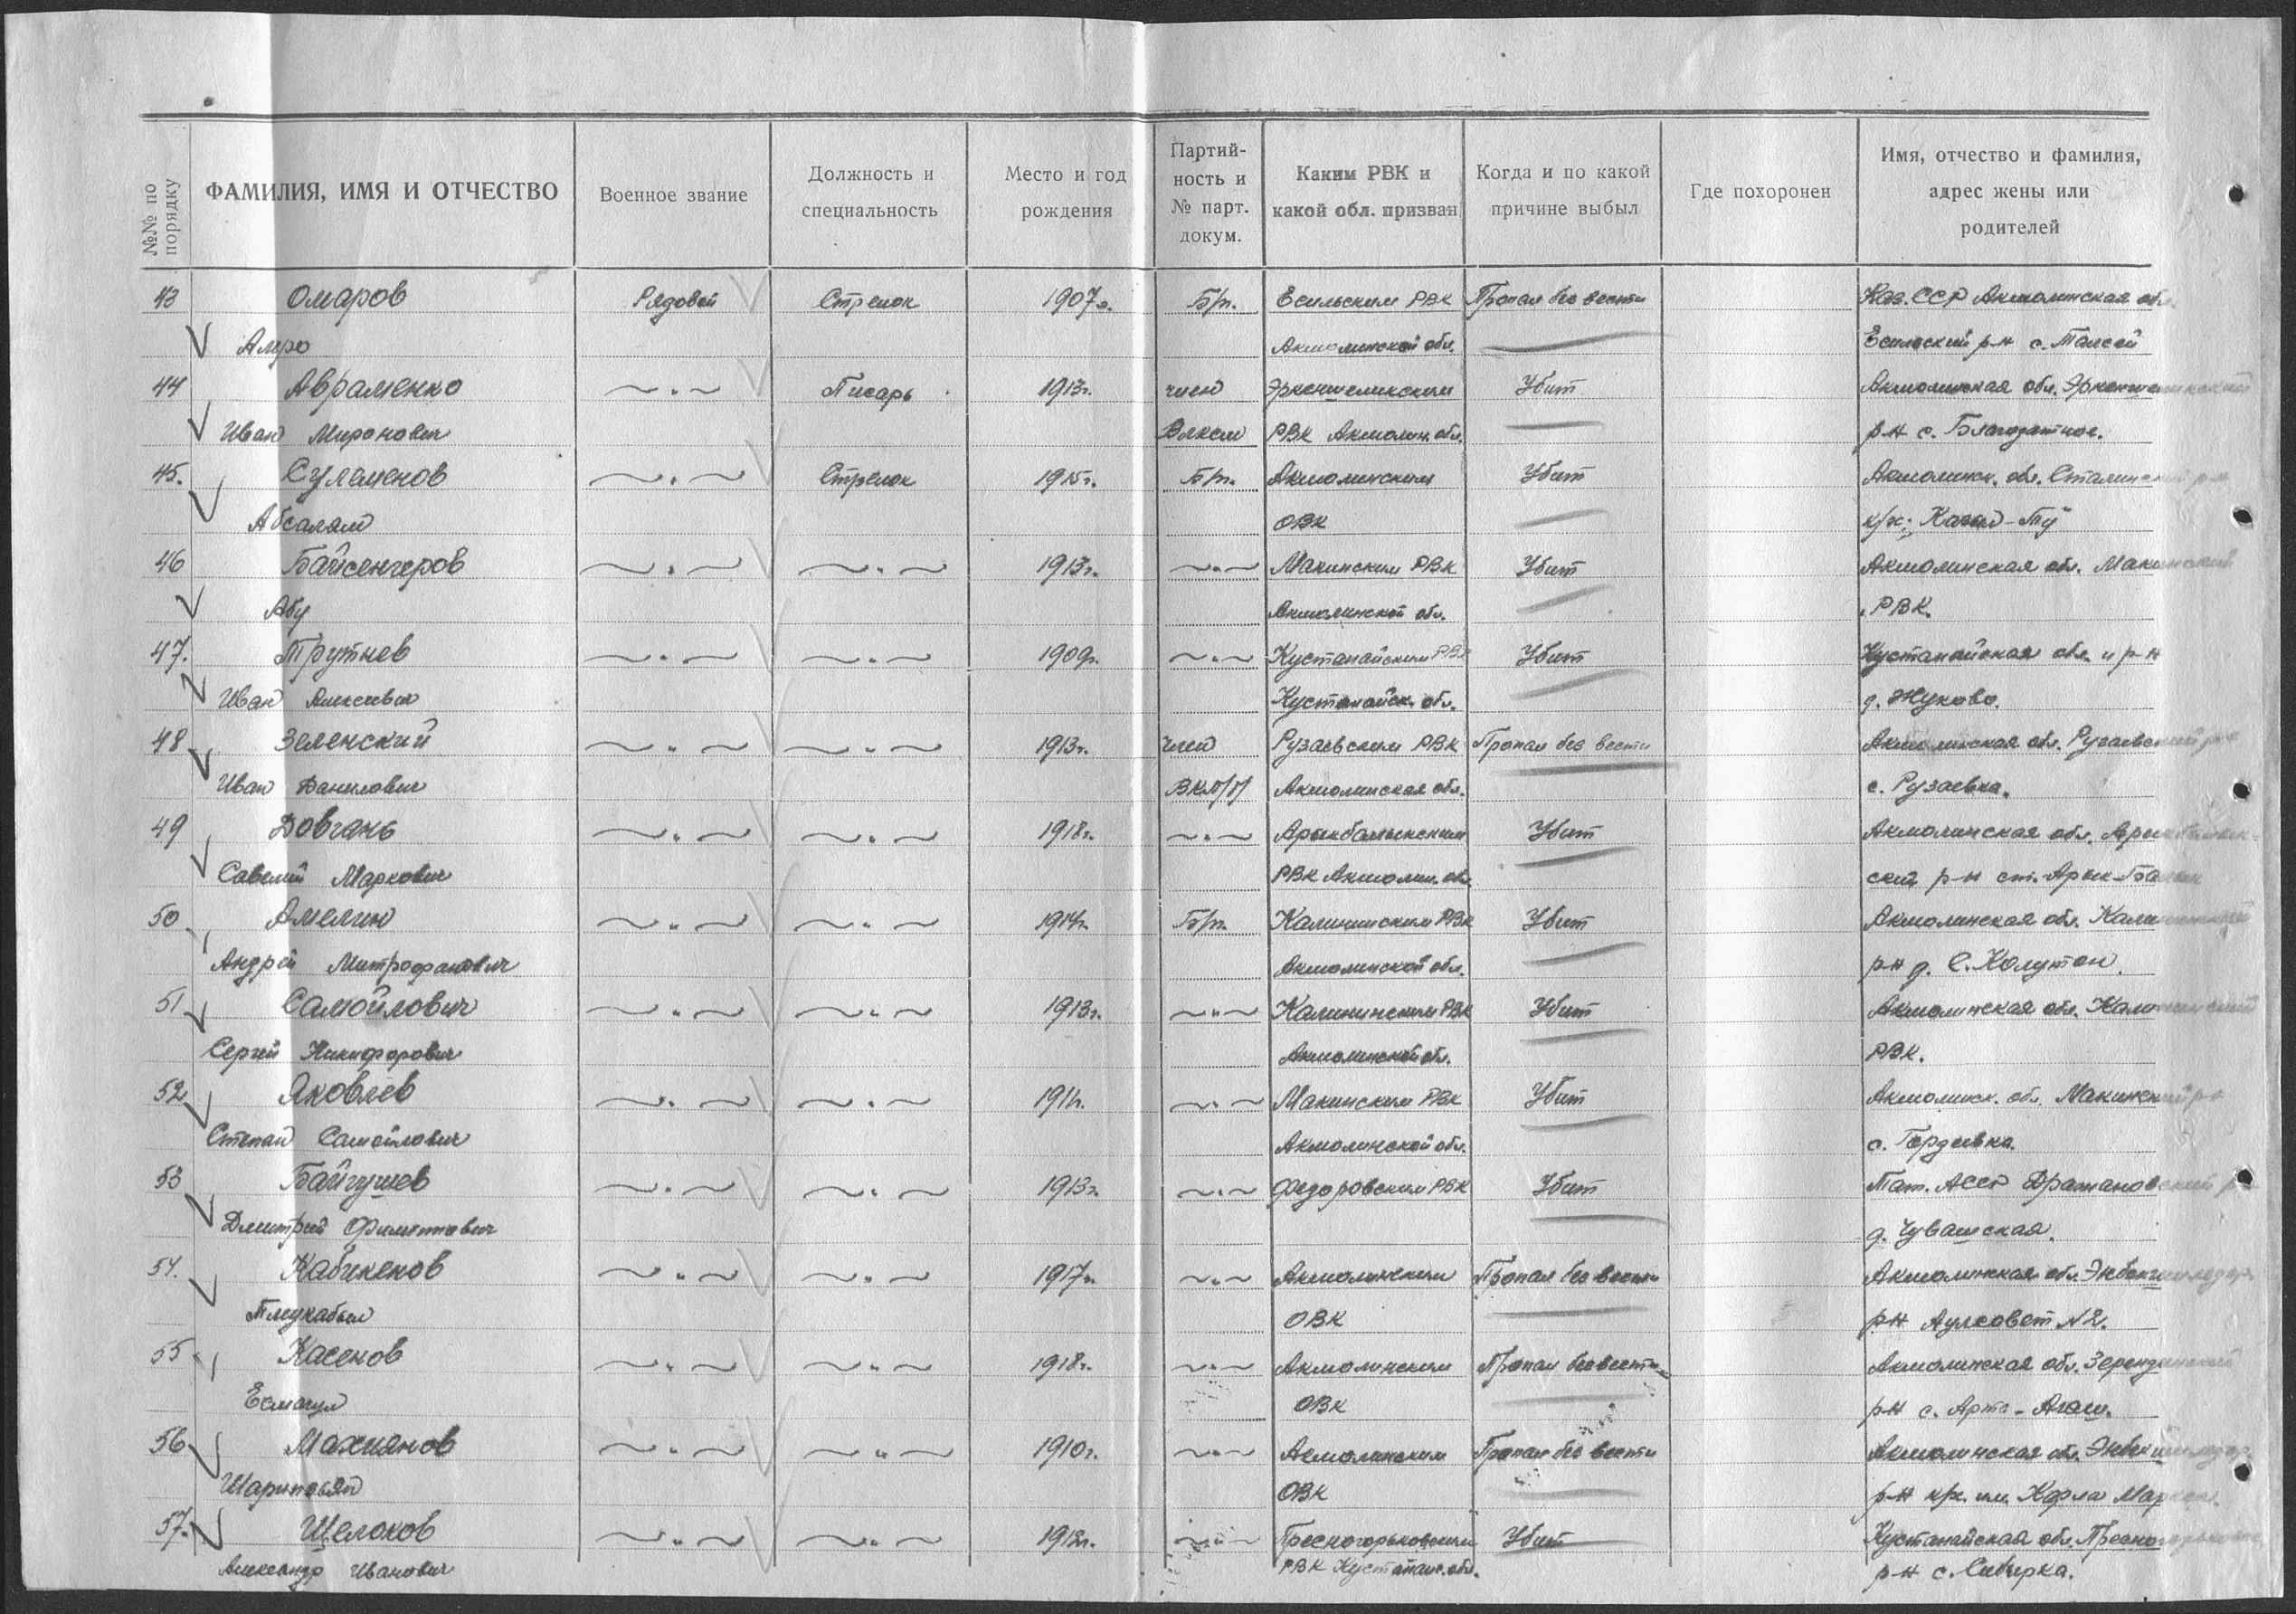 №№ по порядку
ФАМИЛИЯ, ИМЯ И ОТЧЕСТВО
Военное звание
Должность и
специальность
Место и год
рождения
Партий-
ность и
№ парт.
докум.
Каким РВК и
какой обл. призван
Когда и по какой
причине выбыл
Где похоронен
Имя, отчество и фамилия,
адрес жены или
родителей
43 Омаров Рядовой Стрелок 1907г. Б/п. Есильским РВК Пропал без вести Каз. ССР Акмолинская обл.
Амро Акмолинской обл. Есильский р-н с.
44 Авраменко —〃— Писарь 1913г. член Эркеншиликским Убит Акмолинская обл. Эркеншиликский
Иван Миронович РВК Акмолин. обл. р-н с. Благодатное.
45. Сулеменов —〃— Стрелок 1915г. Б/п. Акмолинским Убит Акмолинск. обл. Сталинский р-н
Абсалям ОВК к/х:
46 Байсенгеров —〃— —〃— 1913г. —〃— Макинским РВК Убит Акмолинская обл. Макинский
Абу Акмолинской обл. РВК.
47. Трутнев —〃— —〃— 1909г. —〃— Кустанайским РВК Убит Кустанайская обл. и р-н
Иван Алексеевич Кустанайск. обл. д. Жуково.
48 Зеленский —〃— —〃— 1913г. член Рузаевским РВК Пропал без вести Акмолинская обл. Рузаевский р-н
Иван Данилович ВКП/б/ Акмолинская обл. с. Рузаевка.
49 Довгань —〃— —〃— 1918г. —〃— Арыкбалыкским Убит Акмолинская обл. Арыкбалык-
Савелий Маркович РВК Акмолин. обл. ский р-н ст. Арык-Балык
50 Амелин —〃— —〃— 1914г. Б/п. Калининским РВК Убит Акмолинская обл. Калининский
Андрей Митрофанович Акмолинской обл. р-н д. С. Колутон.
51 Самойлович —〃— —〃— 1913г. —〃— Калининским РВК Убит Акмолинская обл. Калининский
Сергей Никифорович Акмолинской обл. РВК.
52 Яковлев —〃— —〃— —〃— Макинским РВК Убит Акмолинск. обл. Макинский р-н
Степан Самойлович Акмолинской обл. с. Гордеевка.
53 Байгушев —〃— —〃— 1913г. —〃— Федоровским РВК Убит Тат. АССР
Дмитрий д. Чувашская.
54. Кабикенов —〃— —〃— 1917г. —〃— Акмолинским Пропал без вести Акмолинская обл.
Тлеукабыл ОВК р-н Аулсовет №2.
55 Касенов —〃— —〃— 1918г. —〃— Акмолинским Пропал без вести Акмолинская обл. Зерендинский
Есмагул ОВК р-н с. Арта-Агаш.
56 Махиянов —〃— —〃— 1910г. —〃— Акмолинским Пропал без вести Акмолинская обл.
Шарипьян ОВК р-н к/х. им. Карла Маркса.
57. Щелоков —〃— —〃— —〃— Пресногорьковским Убит Кустанайская обл. Пресногорьковский
Александр Иванович РВК Кустанайс. обл. р-н с. Сибирка.